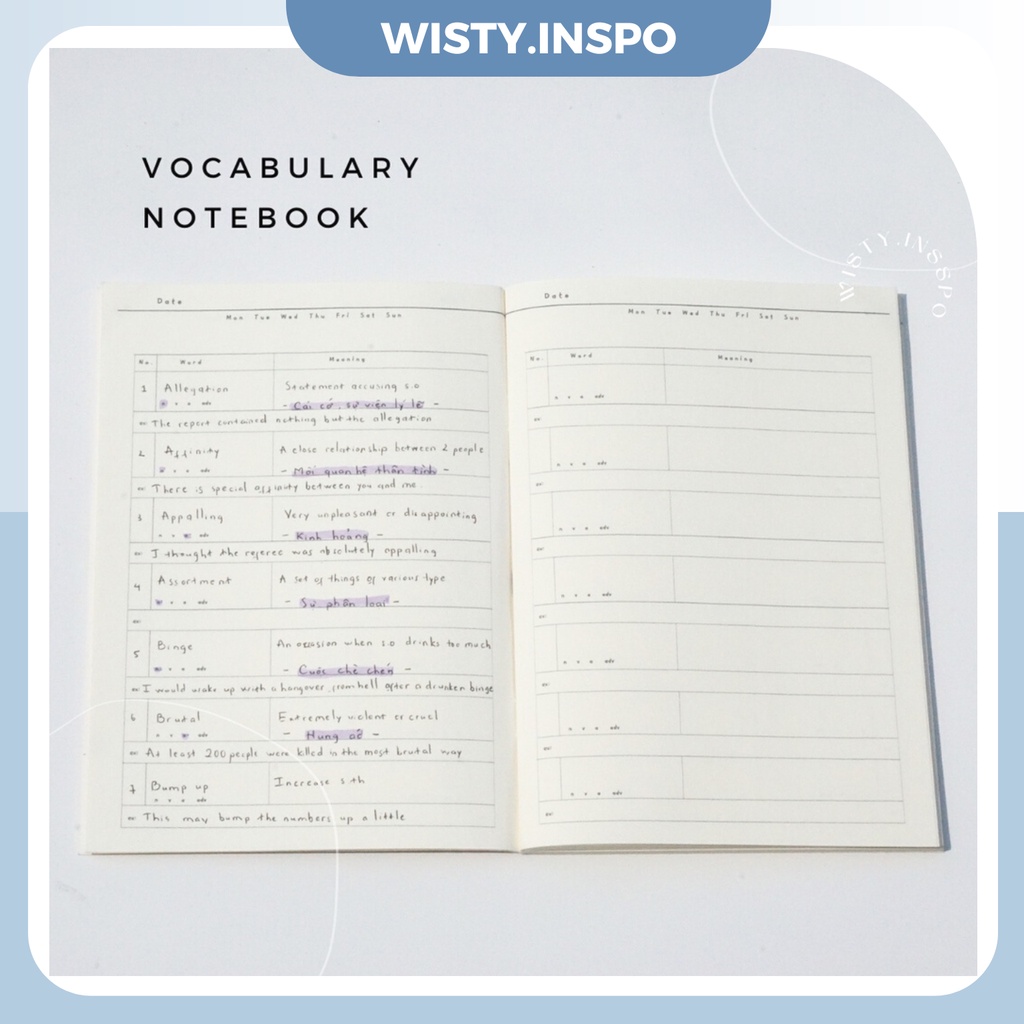 WISTY.INSPO
VOCABULARY
NOTEBOOK
WISTY.INSPO
Date
Mon Tue Wed Thu Fri Sat Sun
No. Word Meaning
1 Allegation Statement accusing s.o
n v a adv - Cái cớ, sự viện lý lẽ -
ex: The report contained nothing but the allegation
2 Affinity A close relationship between 2 people
n v a adv - Mối quan hệ thân tình -
ex: There is special affinity between you and me.
3 Appalling Very unpleasant or disappointing
n v a adv - Kinh hoàng -
ex: I thought the referee was absolutely appalling
4 Assortment A set of things of various type
n v a adv - Sự phân loại -
ex:
5 Binge An occasion when s.o drinks too much
n v a adv - Cuộc chè chén -
ex: I would wake up with a hangover from hell after a drunken binge
6 Brutal Extremely violent or cruel
n v a adv - Hung ác -
ex: At least 200 people were killed in the most brutal way
7 Bump up Increase s.th
n v a adv
ex: This may bump the numbers up a little
Date
Mon Tue Wed Thu Fri Sat Sun
No. Word Meaning
n v a adv
ex:
n v a adv
ex:
n v a adv
ex:
n v a adv
ex:
n v a adv
ex:
n v a adv
ex:
n v a adv
ex: